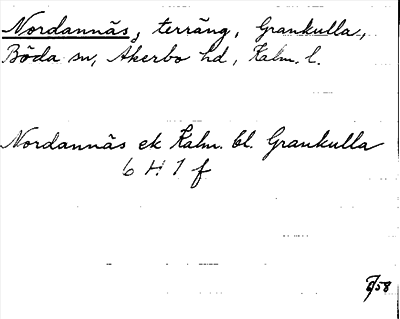 Nordannäs, terräng, Grankulla,
Böda sn, Åkerbo hd, Kalm. l.
Nordannäs ek Kalm. bl. Grankulla
6 H 1 f
58